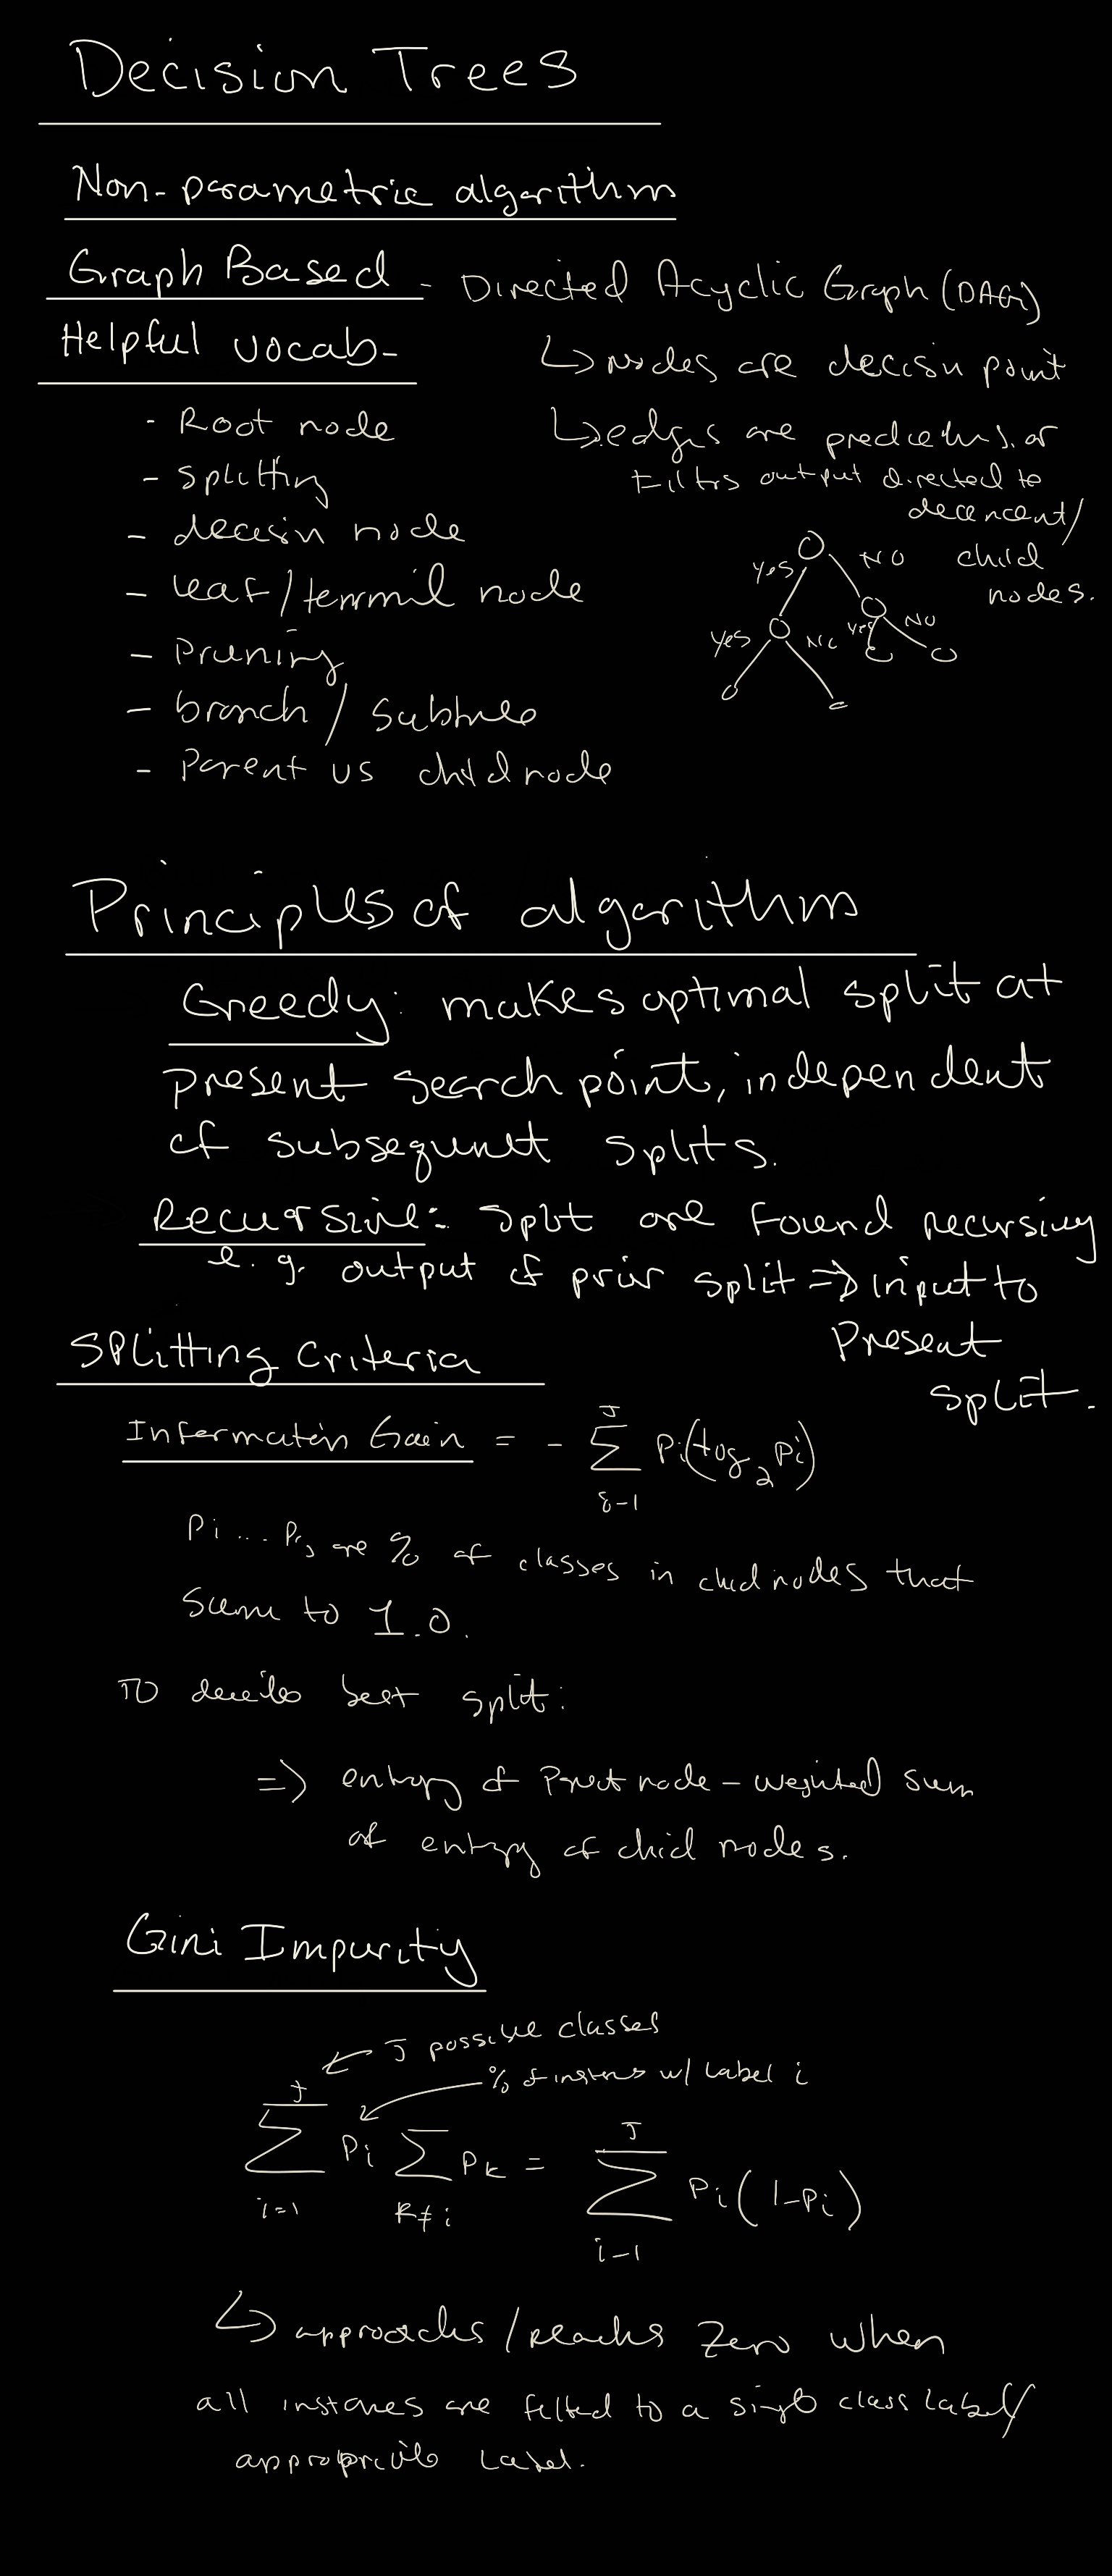 Decision Trees
Non-parametric algorithm
Graph Based - Directed Acyclic Graph (DAG)
Helpful vocab-
↳ nodes are decisin point
- Root node
↳ edges are predictns. or
- splitting
Filtrs output directed to
- decisin node
decencent/
child
nodes.
yes NO
- leaf/termnil node
yes NO yes NO
- Pruning
- branch / subtree
- Parent vs child node
Principles of algorithm
Greedy: makes optimal split at
present search point, independent
of subsequent splits.
Recursive: split are Found recursing
e.g. output of prior split => input to
Present
split.
Splitting Criteria
Information Gain = - J ∑ i-1 Pi(log₂ Pi)
Pi ... Pj are % of classes in child nodes that
sum to 1.0.
TO decide best split:
=> entropy of Parent node - weighted sum
of entropy of child nodes.
Gini Impurity
← J possible classes
% of instans w/ Label i
J ∑ i=1 Pi ∑ k≠i Pk = J ∑ i-1 Pi(1-Pi)
↳ approaches/reachs Zero when
all instances are filted to a single class label/
appropriate Label.